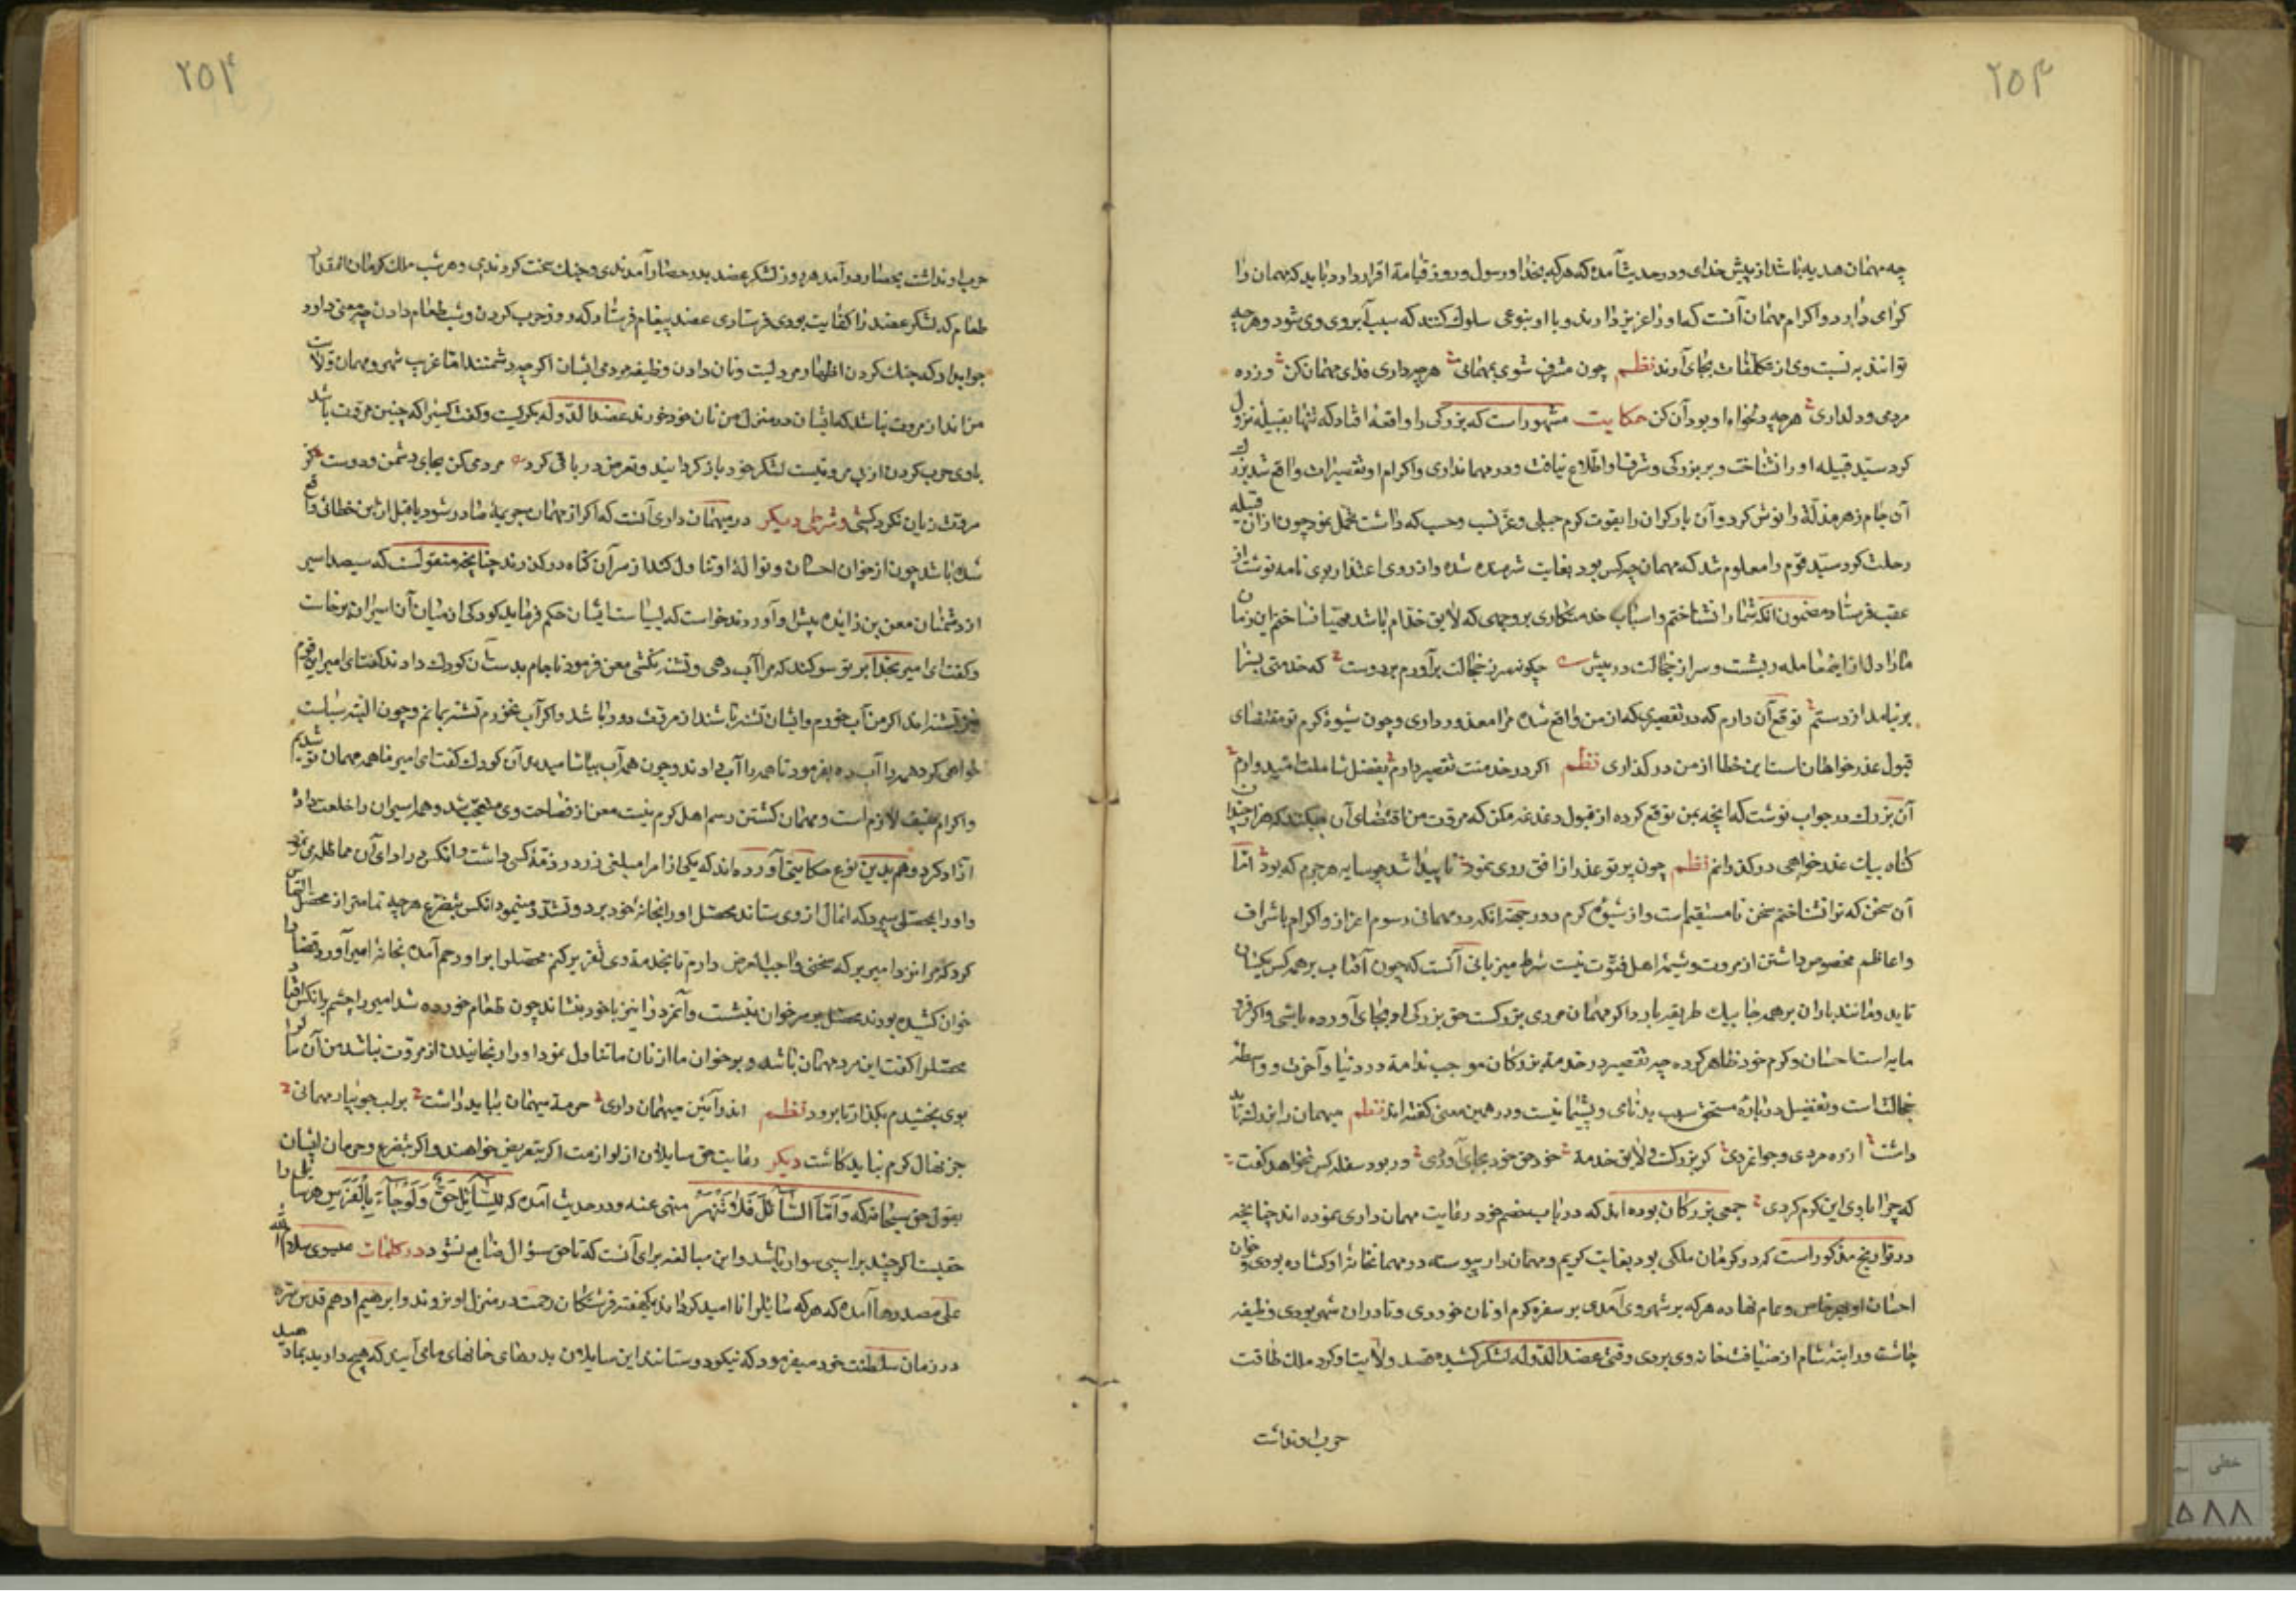 ۲۵۳
چه مهمان هدیه باشد از پیش خدای و در حدیث آمده که هر که بخدا و رسول و روز قیامة اقرار دارد باید که مهمان را
کرامی دارد و اکرام مهمان آنست که او را عزیز دارند و با او بنوعی سلوک کنند که سبب آبروی وی شود و هر چه
توانند به نسبت وی از تکلفات بجای آورند نظم چون مشرف شوی بمهمانی هر چه داری فدای مهمان کن وز ره
مردمی و دلداری هر چه دلخواه او بود آن کن حکایت مشهور است که بزرکی را واقعهٔ افتاد که تنها بقبیله نزول
کرد سید قبیله او را نشناخت و بر بزرکی و شرف او اطلاع نیافت و در مهمانداری و اکرام او تقصیرات واقع شد بزرک
آن جام زهر مذلة را نوش کرد و آن بار کران را بقوت کرم جبلی و عز نسب و حسب که داشت تحمل نمود چون از آن قبیله
رحلت کرد سید قوم را معلوم شد که مهمان چه کس بود بغایت شرمنده شده و از روی اعتذار بوی نامه نوشت از
عقب فرستاد مضمون انکه شما را نشناختم و اسباب خدمتکاری بر وجهی که لایق خدام باشد مهیا نساختم این زمان
مارا دل از این معامله ریشست و سر از خجالت در پیش چکونه سر ز خجالت برآورم بر دوست که خدمتی بسزا
بر نیامد از دستم توقع آن دارم که در تقصیری که از من واقع شده مرا معذور داری و چون شیوهٔ کرم تو مقتضای
قبول عذر خواهان است این خطا از من در کذاری نظم اکر در خدمتت تقصیر دارم بفضل شاملت امیدوارم
آن بزرک در جواب نوشت که انچه بمن توقع کرده از قبول دغدغه مکن که مروت من اقتضای آن میکند که هزار چندان
کناه بیک عذر خواهی در کذرانم نظم چون پرتو عذر از افق روی نمود ناپیدا شد چو سایه هر جرم که بود اما
آن سخن که ترا نشناختم سخن نامستقیم است و از شیوهٔ کرم دور جهة انکه در مهمانی رسوم اعزاز و اکرام باشراف
و اعاظم مخصوص داشتن از مروت و شیمهٔ اهل فتوت نیست شرط میزبانی آنست که چون آفتاب بر همه کس یکسان
تابد و مانند باران بر همه جا بیک طریقه بارد اکر مهمان مردی بزرکست حق بزرکی او بجای آورده باشی و اکر فرو
مایه است احسان و کرم خود ظاهر کرده چه تقصیر در خدمة بزرکان موجب ندامة در دنیا و آخرت و واسطه
خجالتست و تفضیل در بارهٔ مستحق سبب بدنامی و پشیمانی نیست و در همین معنی کفته اند نظم میهمان را عزیز باید
داشت از ره مردی و جوانمردی کر بزرکست و لایق خدمة خود حق خود بجای آوردی ور بود سفله کس نخواهد کفت
که چرا با وی این کرم کردی جمعی بزرکان بوده اند که در باب خصم خود رعایت مهمان داری نموده اند چنانچه
در تواریخ مذکور است که در کرمان ملکی بود بغایت کریم و مهمان دار پیوسته در مهمانخانهٔ او کشاده بودی و خوان
احسان او بهر خاص و عام نهاده هر که بر شهر وی آمدی بر سفرهٔ کرم او نان خوردی و تا در آن شهر بودی وظیفه
چاشت و راتبهٔ شام از ضیافت خانه وی بردی وقتی عضد الدوله لشکر کشیده قصد ولایت او کرد ملک طاقت
حرب او نداشت
۲۵۴
حرب او نداشت بحصار درآمد هر روز لشکر عضد بدر حصار آمدندی و جنک سخت کردندی و هر شب ملک کرمان انمقدار
طعام که لشکر عضد را کفایت بودی فرستادی عضد پیغام فرستاد که روز حرب کردن و شب طعام دادن چه معنی دارد
جواب داد که جنک کردن اظهار مردیست و نان دادن وظیفه مردمی ایشان اکر چه دشمنند اما غریب شهر و مهمان ولایت
من اند از مروت نباشد که ایشان در منزل من نان خود خورند عضد الدوله بکریست و کفت کسیرا که چنین مروت باشد
با وی حرب کردن از بی مروتیست لشکر خود باز کردانید و تعرض در باقی کرد مردمی کن بجای دشمن و دوست کز
مروت زیان نکرد کسی و شرطی دیکر در میهمان داری آنست که اکر از مهمان جریمهٔ صادر شود یا قبل ازین خطائی واقع
شده باشد چون از خوان احسان و نوالهٔ او تناول کند از سر آن کناه در کذرند چنانچه منقولست که سیصد اسیر
از دشمنان معن بن زایده پیش او آوردند خواست که بسیاست ایشان حکم فرماید کودکی از میان آن اسیران برخاست
و کفت ای امیر بخدا بر تو سوکند که مرا آب دهی و تشنه نکشی معن فرمود تا جام بدست آن کودک دادند کفت ای امیر این قوم
نیز تشنه اند اکر من آب خورم و ایشان تشنه باشند از مروت دور باشد و اکر آب نخورم تشنه بمانم و چون البته سیاست
خواهی کرد همه را آب ده بفرمود تا همه را آب دادند و چون همه آب بیاشامیدند آن کودک کفت ای امیر ما همه مهمان تو شدیم
و اکرام ضیف لازم است و مهمان کشتن رسم اهل کرم نیست معن از فصاحت وی متعجب شد و همه اسیران را خلعت داد
آزاد کرد و هم بدین نوع حکایتی آورده اند که یکی از امرا مبلغی زر در ذمهٔ کسی داشت و انکس در ادای آن مماطله می نمود
و او را بمحصلی سپرد که انمال از وی ستاند محصل او را بخانهٔ خود برد و تشدد مینمود انکس بتضرع هر چه تمامتر از محصل التماس
کرد که مرا نزد امیر بر که سخنی واجب العرض دارم تا بخدمة وی تقریر کنم محصل را بر او رحم آمده بخانهٔ امیر آورد قضا را
خوان کشیده بودند محصل بر سر خوان بنشست و آنمرد را نیز با خود بنشاند چون طعام خورده شد امیر را چشم بر انکس افتاد
محصل را کفت این مرد مهمان ما شد و بر خوان ما از نان ما تناول نمود او را رنجانیدن از مروت نباشد من آن مال را
بوی بخشیدم بکذار تا برود نظم اندر آئین میهمان داری حرمة میهمان بباید داشت بر لب جویبار مهمانی
جز نهال کرم نباید کاشت دیکر رعایت حق سایلان از لوازمست اکر بتعریض خواهند و اکر بتضرع و حرمان ایشان
بقول حق سبحانه که وَاَمَّا السَّآئِلَ فَلَا تَنْهَرْ منهی عنه و در حدیث آمده که لِلسَّآئِلِ حَقٌّ وَلَوْ جَآءَ بِالْفَرَسِ هر سایل را
حقیست اکر چند بر اسپی سوار باشد و این مبالغه برای آنست که تا حق سؤال ضایع نشود در کلمات عیسوی سلام الله
علی مصدرها آمده که هر که سایلرا نا امید کرداند یکهفته فرشتکان رحمت در منزل او نروند و ابراهیم ادهم قدس سره
در زمان سلطنت خود میفرمود که نیکو دوستانند این سایلان بدر های خانهای ما می آیند که هیچ دارید بما دهید
خطی
۵۸۸